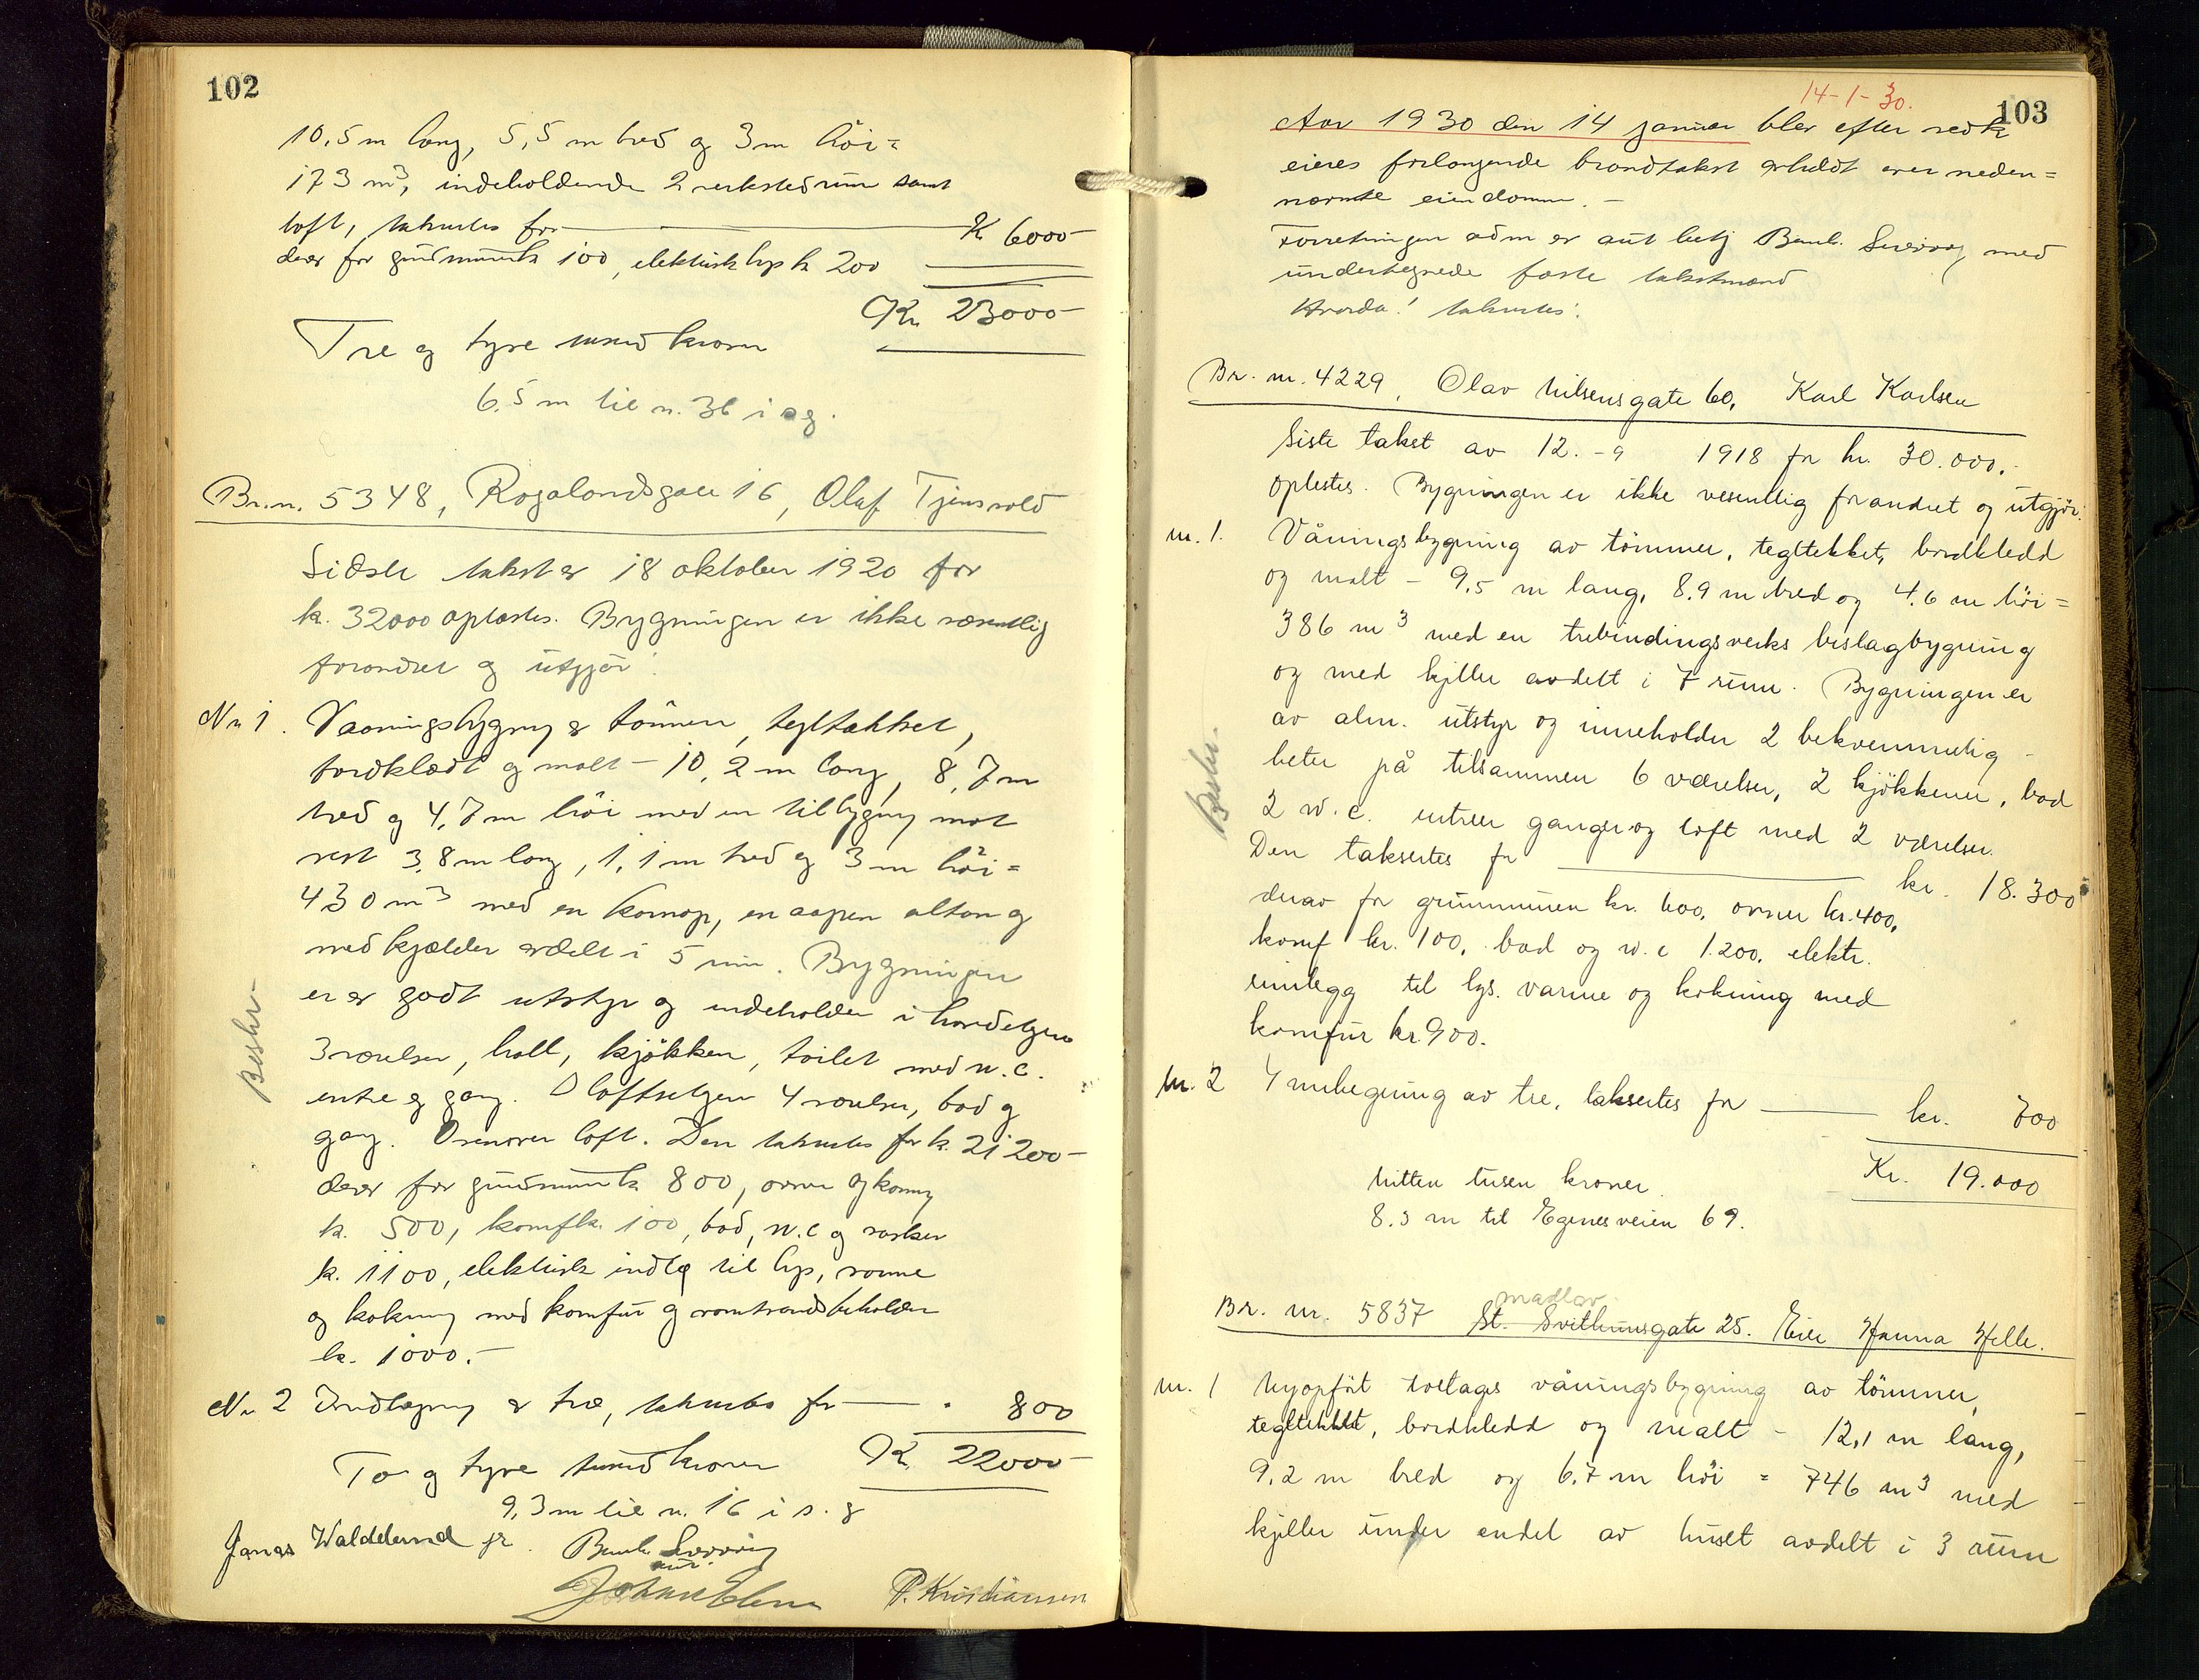 102
10,5 m lang, 5,5 m bred og 3 m höi =
173 m³, indeholdende 2 verkstedrum samt
loft, takseres for — Kr 6000-
derav for grundmur kr 100, elektrisk lys kr 200
Kr. 23000-
Tre og tyve tusend kroner
6,5 m til n. 36 i ag.
Br.n. 5348, Rogalandsgate 16, Olaf Tjensvold
Sidste takst av 18 oktober 1920 for
kr. 32000 oplæstes. Bygningen er ikke væsentlig
forandret og utgjør:
Nr 1. Vaaningsbygning av tömmer, tegltækket,
bordklædt og malt - 10,2 m lang, 8,7 m
bred og 4,7 m höi med en tilbygning mot
vest 3,8 m lang, 1,1 m bred og 3 m höi =
430 m³ med en karnap, en aapen altan og
med kjælder avdelt i 5 rum. Bygningen
er av godt utstyr og indeholder i hovedetagen
3 værelser, hall, kjökken, toilet med w.c.
entre og gang. I loftsetagen 4 værelser, bad og
gang. Ovenover loft. Den takseres for kr. 21200-
derav for grundmur kr 800, ovner og kamin
kr. 500, komf kr. 100, bad, w.c og vasker
kr. 1100, elektrisk indlæg til lys, varme
og kokning med komfur og varmtvandsbeholder
kr. 1000.-
Beskr.
Nr 2 Indhegning av træ, takseres for — " 800
Kr. 22000-
To og tyve tusend kroner
9,3 m til n. 16 i s. g
Jonas Waldeland jr. Bernh. Sverdrup
aut.
P. Kristiansen
14-1-30.
103
Aar 1930 den 14 januar blev efter vedk
eieres forlangende brandtakst avholdt over neden=
nævnte eiendomme. -
Forretningen adm av aut betj Bernh. Sverdrup, med
undertegnede faste takstmænd
Hvorda! takseres:
Br. nr. 4229, Olav Nilsensgate 60, Karl Karlsen
Siste takst av 12. - 9 1918 for kr. 30.000.-
oplestes. Bygningen er ikke vesentlig forandret og utgjör:
nr. 1. Våningsbygning av tömmer, tegltekket, bordkledd
og malt - 9,5 m lang, 8.9 m bred og 4.6 m höi =
386 m³ med en trebindingsverks bislagbygning
og med kjeller avdelt i 7 rum. Bygningen er
av alm. utstyr og inneholder 2 bekvemmelig-
heter på tilsammen 6 værelser, 2 kjökkener, bad
2 w.c. entreer ganger og loft med 2 værelser.
Den takseres for — kr. 18.300
derav for grunnmuren kr. 600, ovner kr. 400,
komf kr. 100, bad og w.c 1.200, elektr.
innlegg til lys. varme og kokning med
komfur kr. 900.
Beskr.
nr. 2 Innhegning av tre, takseres for — kr. 700
Kr. 19.000
Nitten tusen kroner
8.3 m til Egenesveien 69.
Madlav.
Br. nr. 5837 St. Svithunsgate 25. Eier Hanna Helle.
nr. 1 Nyopfört toetages våningsbygning av tömmer,
tegltekket, bordkledd og malt - 12,1 m lang,
9.2 m bred og 6.7 m höi = 746 m³ med
kjeller under endel av huset avdelt i 3 rum